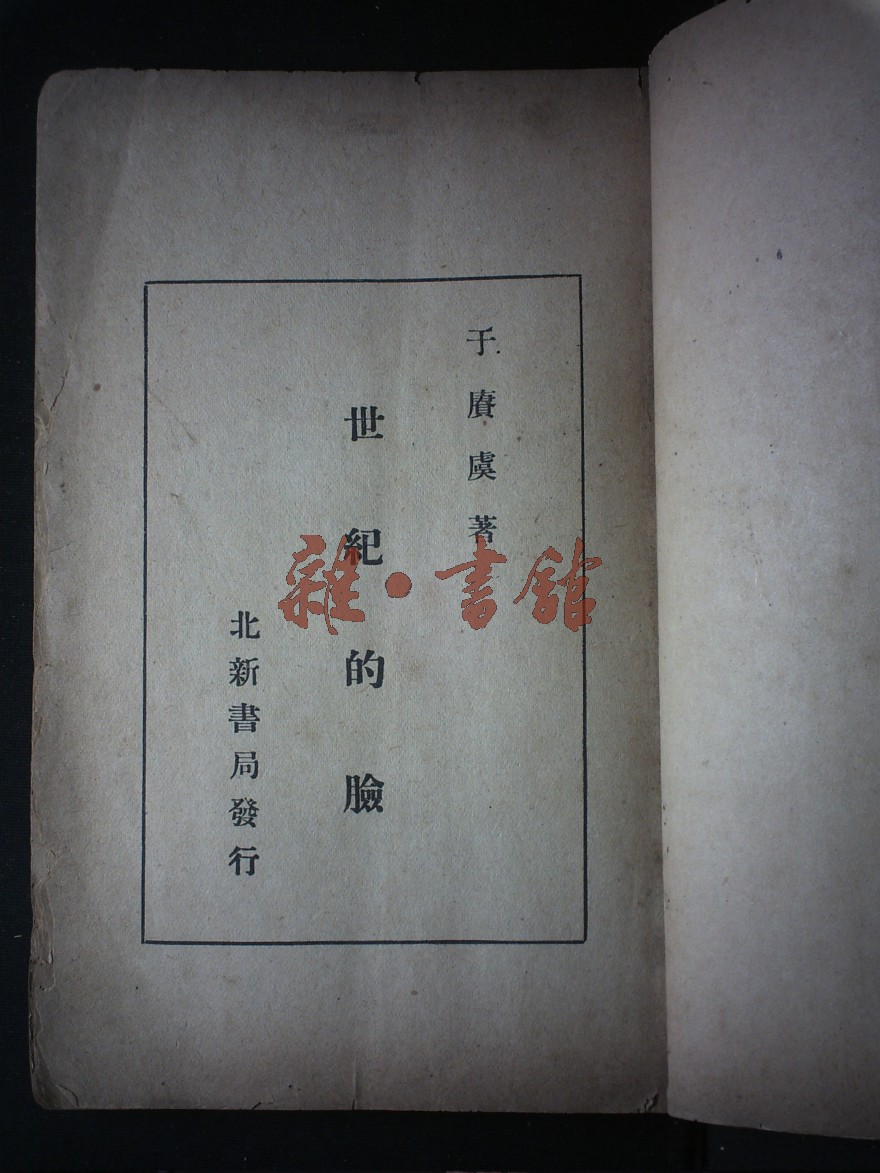 于賡虞著
世紀的臉
北新書局發行
雜·書館